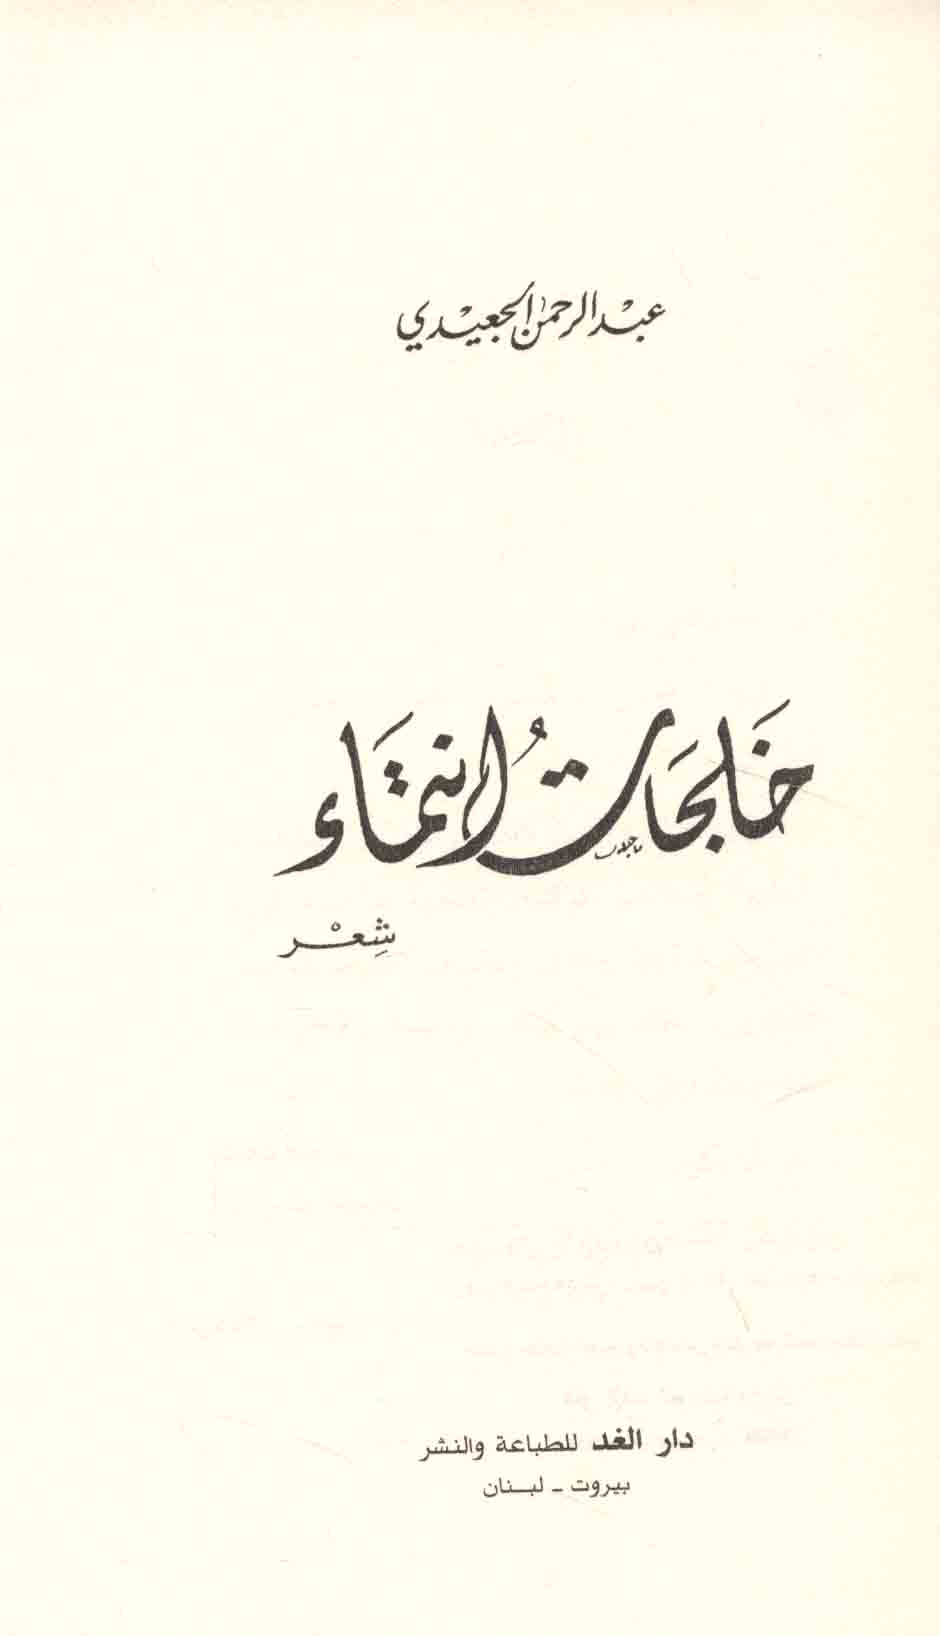 عبد الرحمن الجعيدي
خَلجَات اُنتمَاء
شِعْر
دار الغد للطباعة والنشر
بيروت ـ لبنان